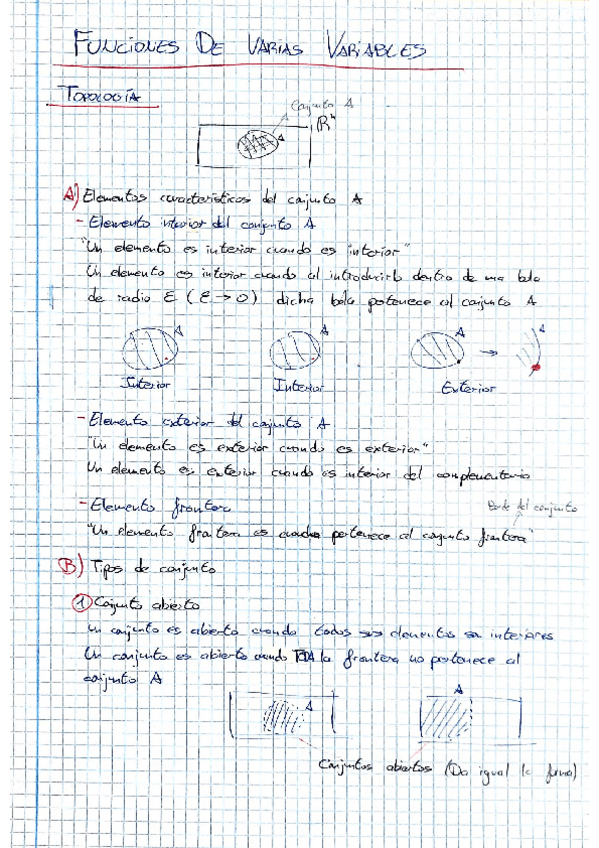 FUNCIONES DE VARIAS VARIABLES
TOPOLOGÍA
Conjunto A
A
ℝⁿ
A) Elementos característicos del conjunto A
- Elemento interior del conjunto A
"Un elemento es interior cuando es interior"
Un elemento es interior cuando al introducirlo dentro de una bola
de radio ε (ε → 0) dicha bola pertenece al conjunto A
A A A → A
Interior Interior Exterior
- Elemento exterior del conjunto A
"Un elemento es exterior cuando es exterior"
Un elemento es exterior cuando es interior del complementario
- Elemento frontera
Borde del conjunto
"Un elemento frontera es cuando pertenece al conjunto frontera"
B) Tipos de conjunto
1 Conjunto abierto
Un conjunto es abierto cuando todos sus elementos son interiores
Un conjunto es abierto cuando TODA la frontera no pertenece al
conjunto A
A A
Conjuntos abiertos (Da igual la forma)